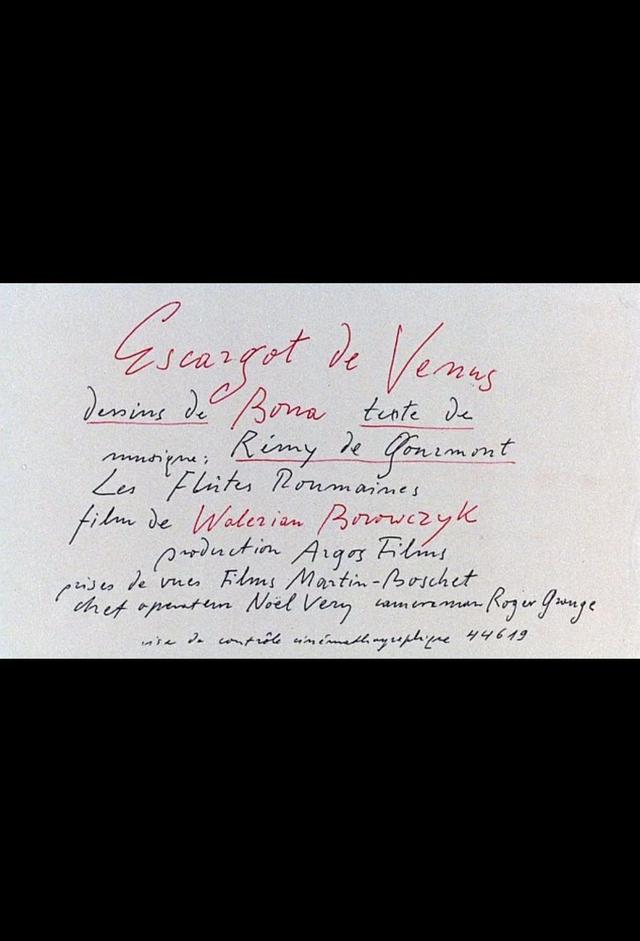 Escargot de Venus
dessins de Bona texte de
musique: Rémy de Gourmont
Les Flûtes Roumaines
film de Walerian Borowczyk
production Argos Films
prises de vues Films Martin-Boschet
chef operateur Noël Very cameraman Roger Grange
visa de contrôle cinémathographique 44619